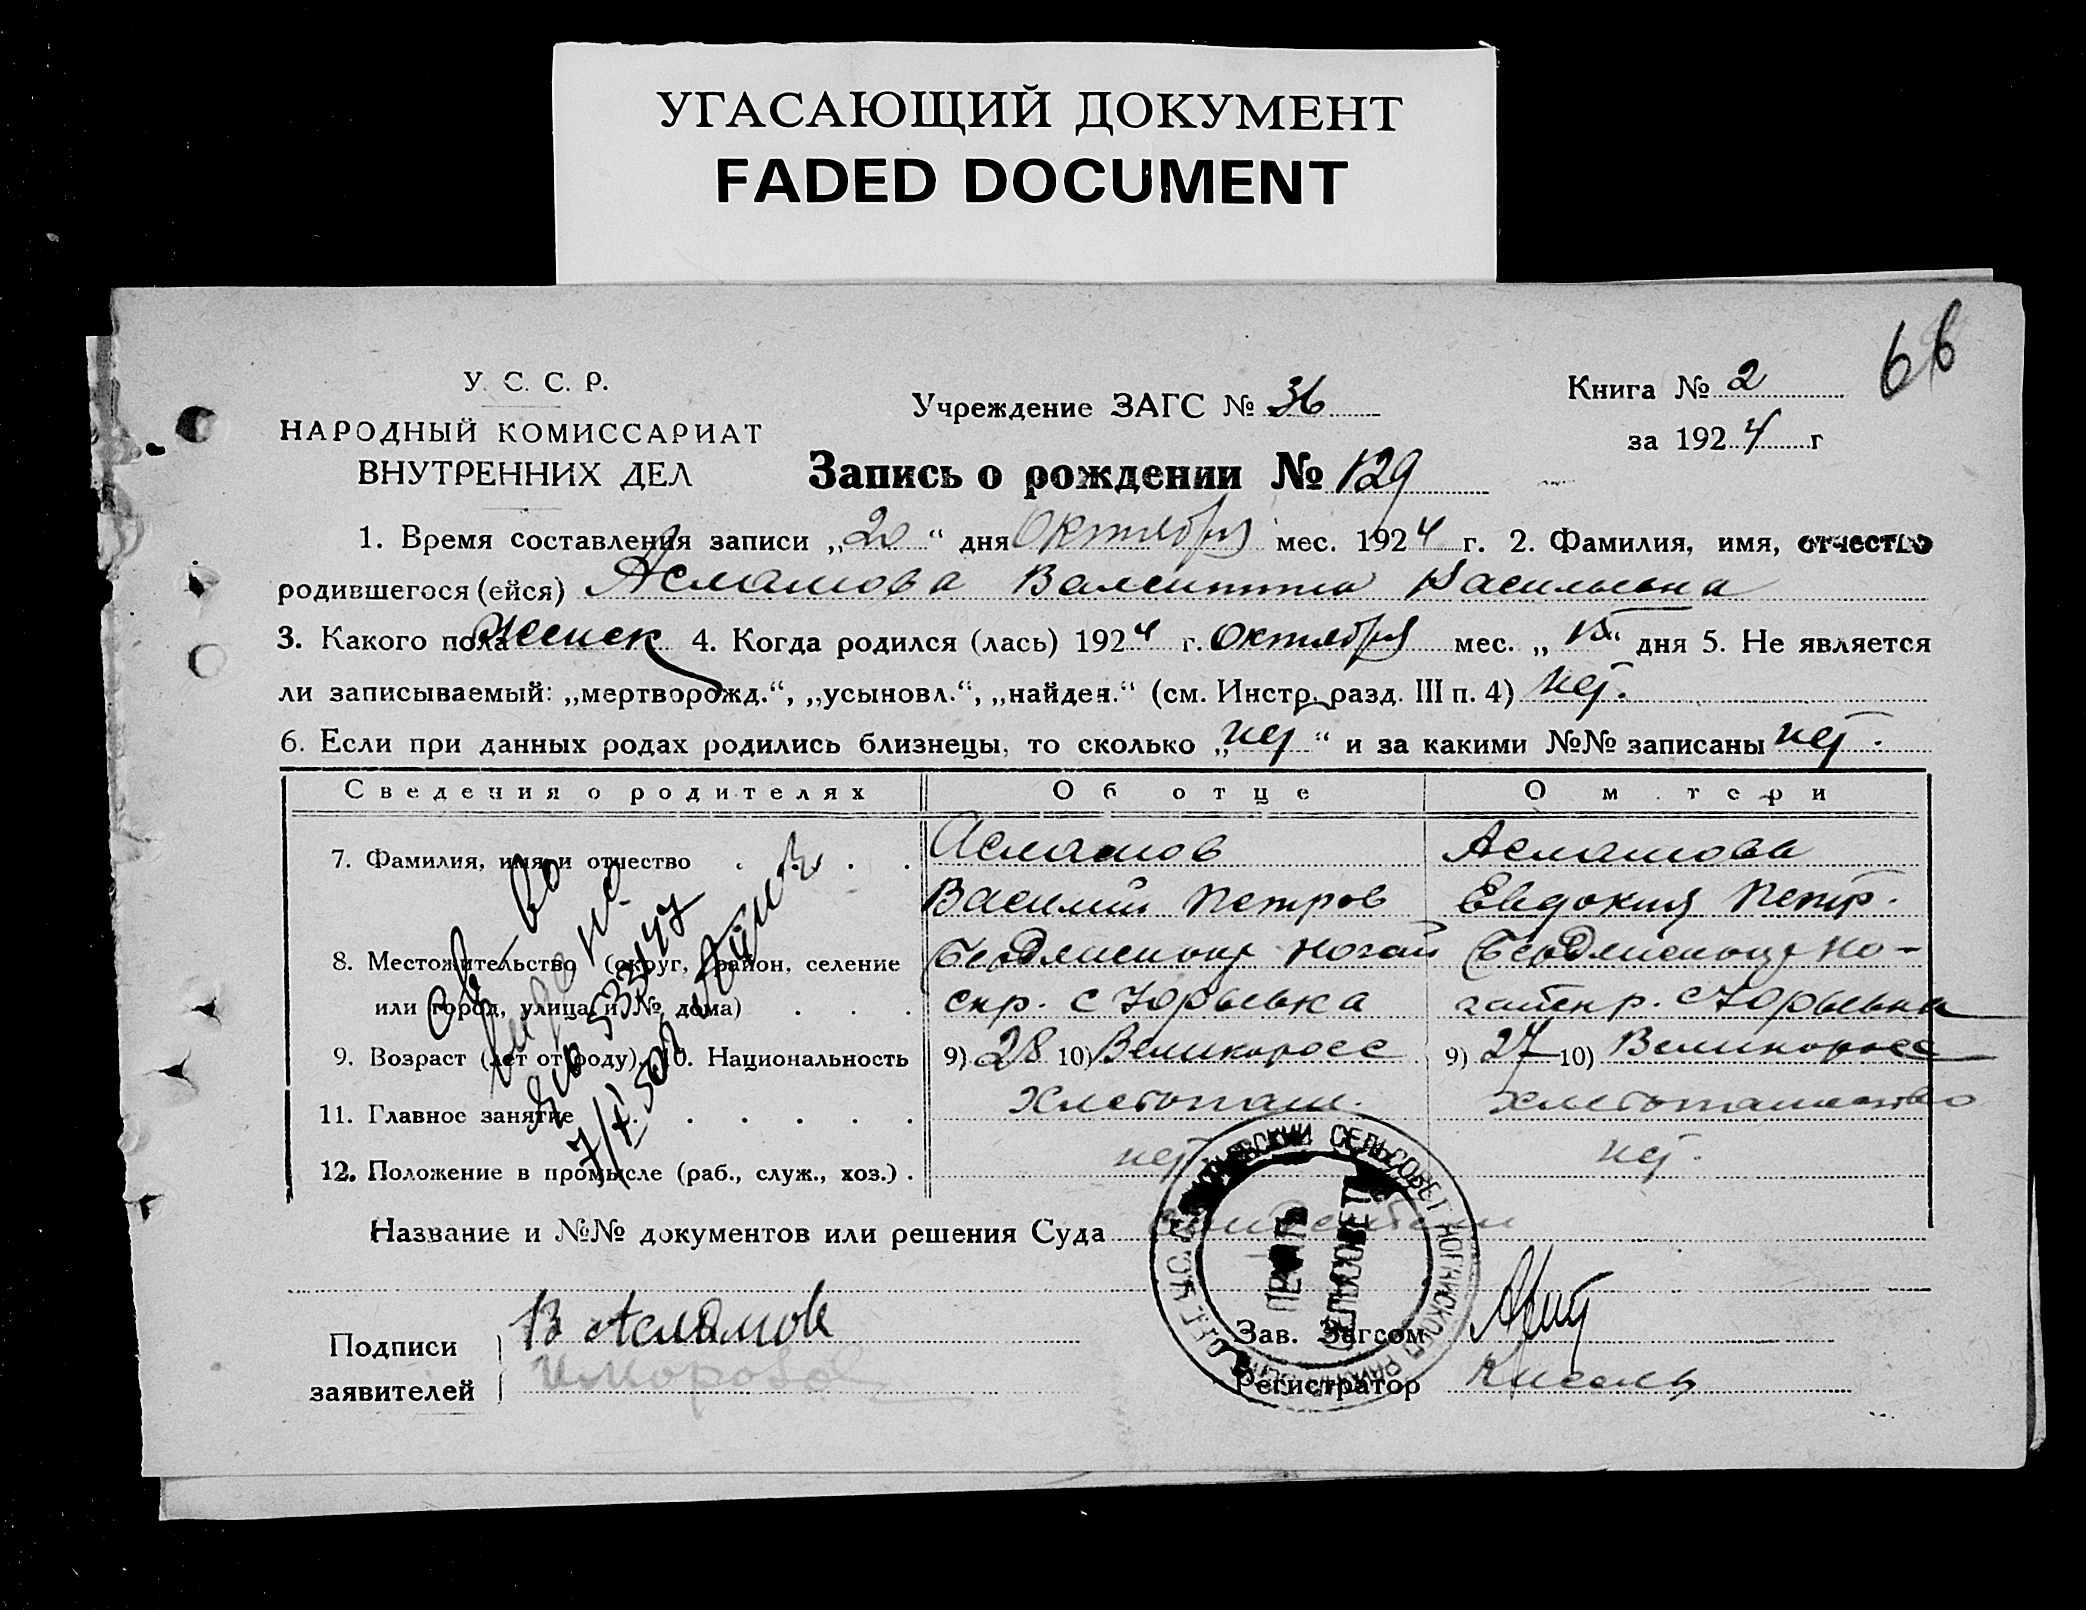 УГАСАЮЩИЙ ДОКУМЕНТ
FADED DOCUMENT
66
У. С. С. Р.
НАРОДНЫЙ КОМИССАРИАТ
ВНУТРЕННИХ ДЕЛ
Учреждение ЗАГС № 36
Книга № 2
за 1924 г
Запись о рождении № 129
1. Время составления записи „20“ дня Октября мес. 1924 г. 2. Фамилия, имя, отчество
родившегося (ейся) Асламова Валентина Васильевна
3. Какого пола женск 4. Когда родился (лась) 1924 г. Октября мес. „15“ дня 5. Не является
ли записываемый: „мертворожд.“, „усыновл.“, „найден.“ (см. Инстр. разд. III п. 4) нет.
6. Если при данных родах родились близнецы, то сколько „нет“ и за какими №№ записаны нет.
Сведения о родителях Об отце О м тери
7. Фамилия, имя и отчество . . . Асламов Асламова
Василий Петров Евдокия Петр.
8. Местожительство (округ, район, селение Бердянского Ногай Бердянского Но-
или город, улица и № дома) . . . скр. с Юрьевка гайскр. с Юрьевка
9. Возраст (лет от роду). 10. Национальность 9) 28 10) Великоросс 9) 27 10) Великоросс
11. Главное занятие . . . . . Хлебопаш. хлебопашество
12. Положение в промысле (раб., служ., хоз.) . нет нет.
Св-во
533447
Название и №№ документов или решения Суда
СЕЛЬСОВЕТ НОГАЙСКОГО
ПЕЧАТЬ
СЕЛЬСОВЕТ
Подписи
заявителей
В Асламов
И Морозов
Зав. Загсом
Регистратор Кисель